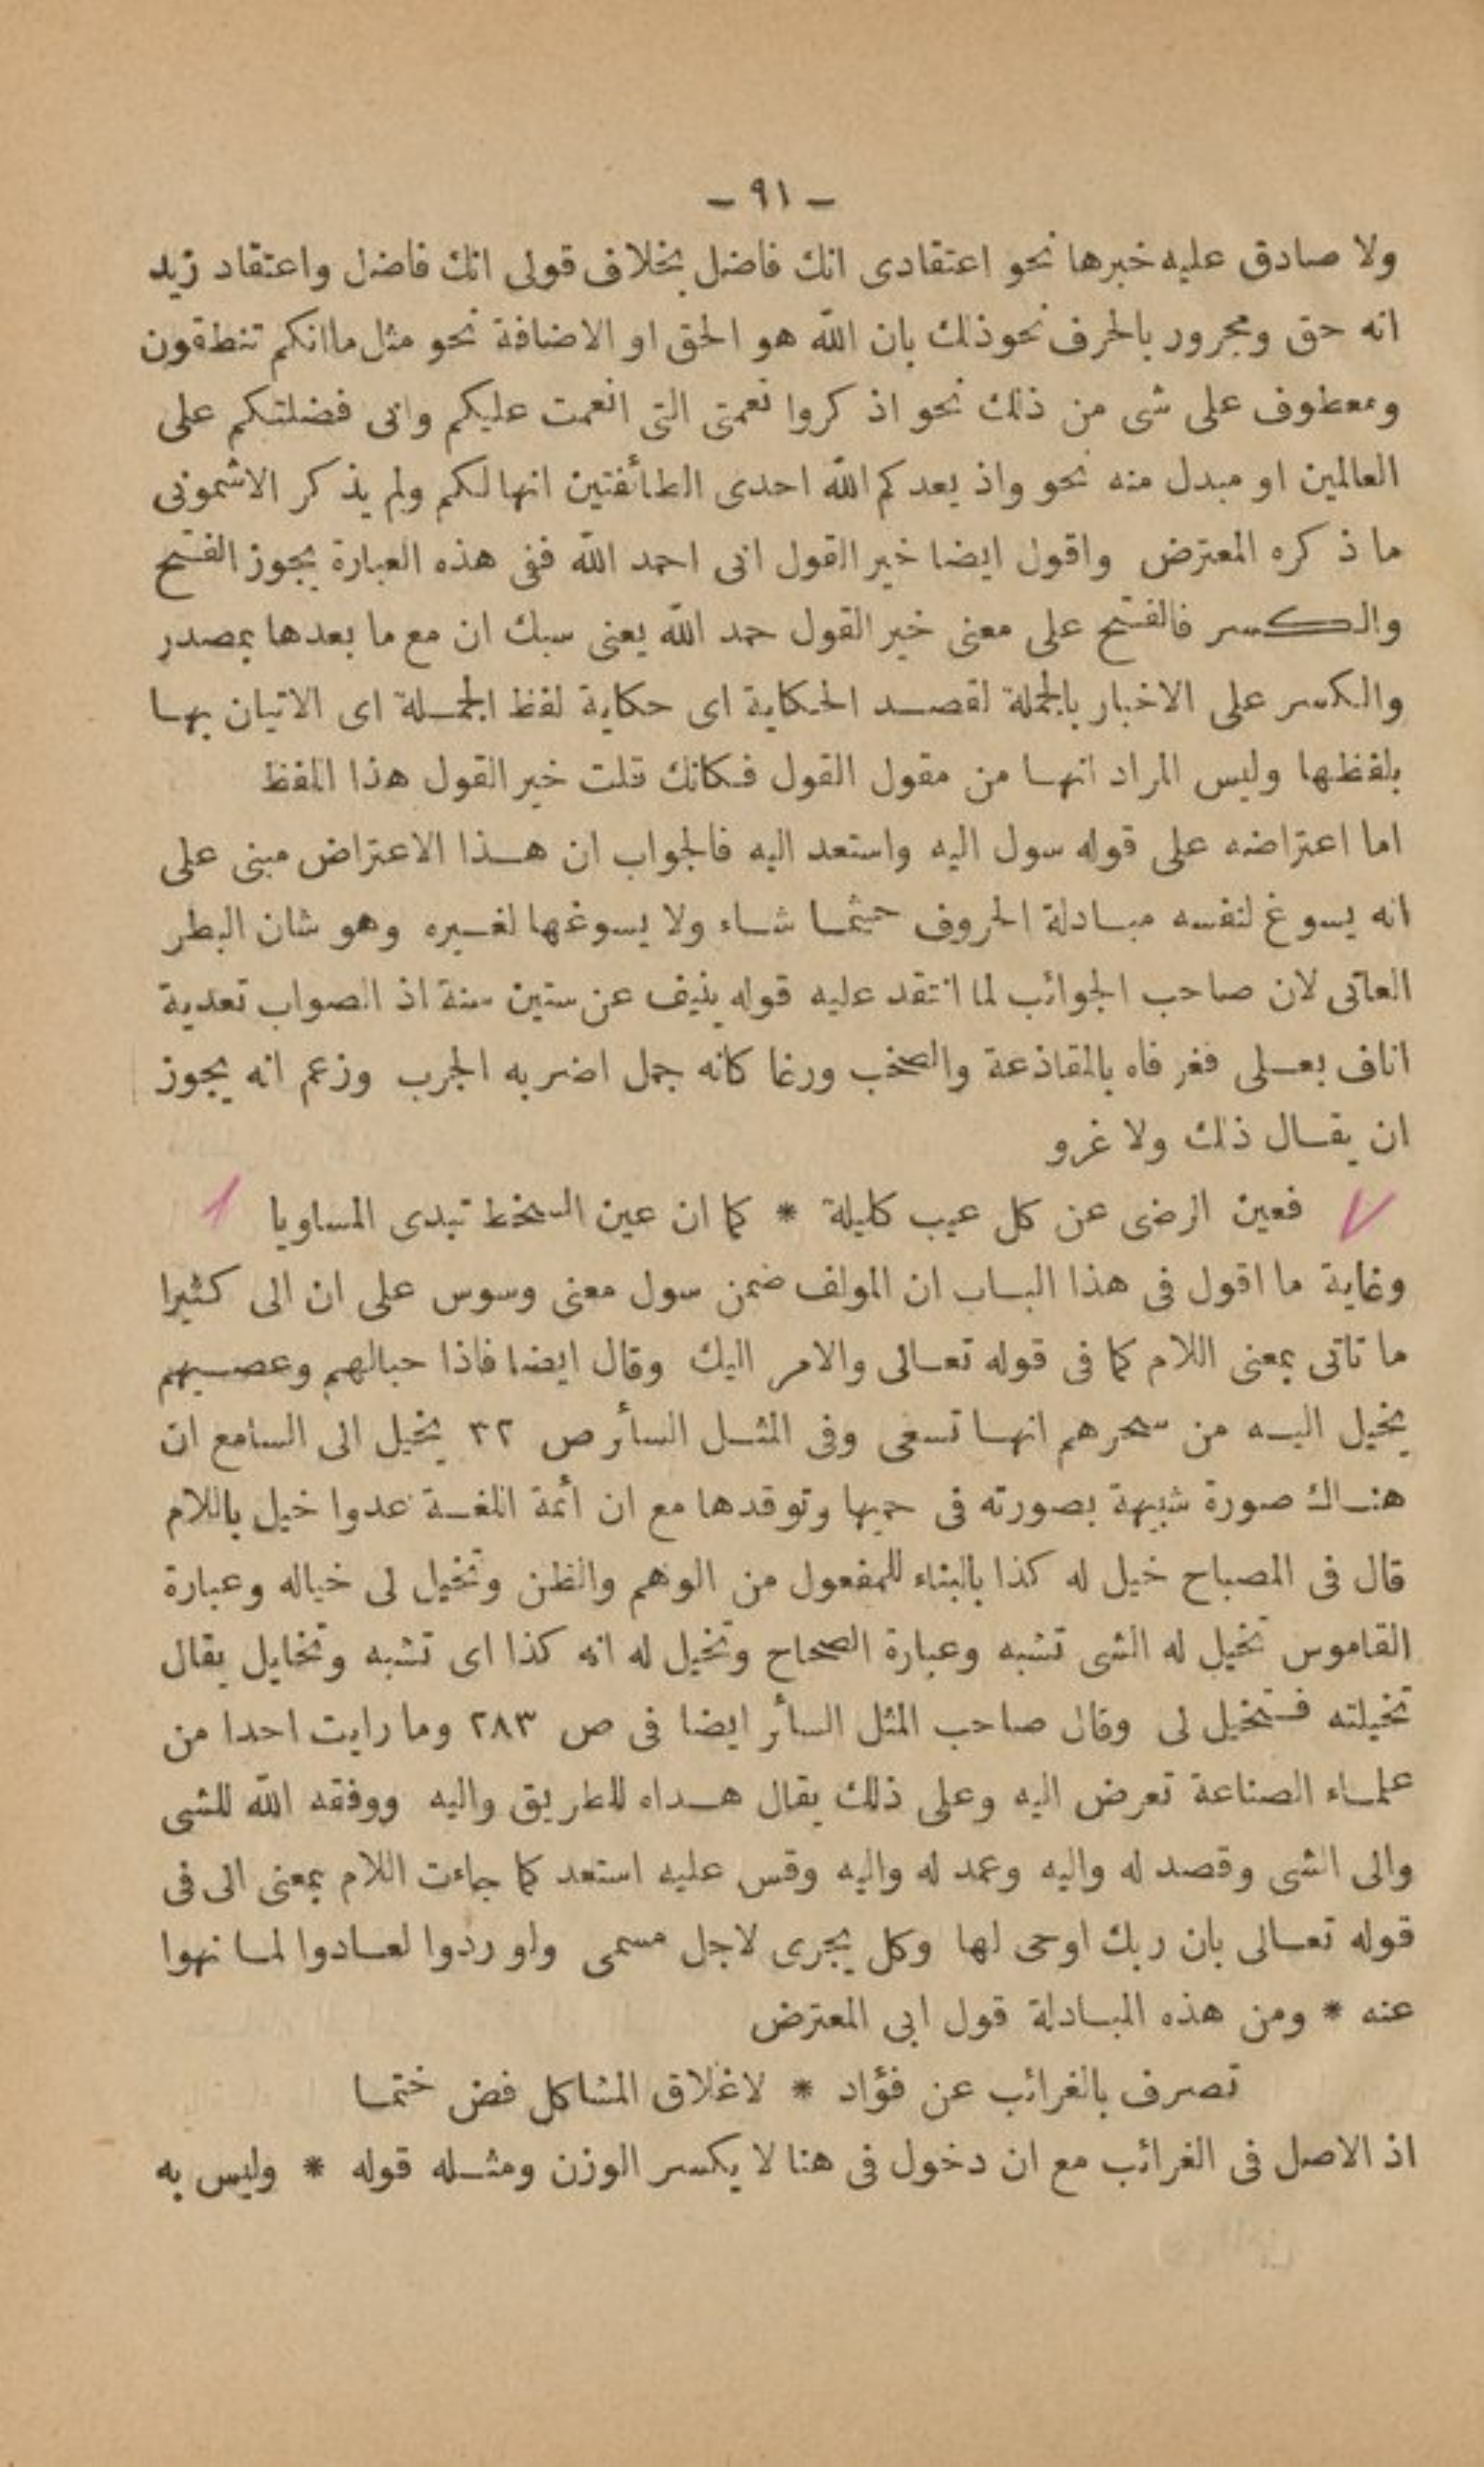 — ٩١ —
ولا صادق عليه خبرها نحو اعتقادى انك فاضل بخلاف قولى انك فاضل واعتقاد زيد
انه حق ومجرور بالحرف نحو ذلك بان الله هو الحق او الاضافة نحو مثل ما انكم تنطقون
ومعطوف على شى من ذلك نحو اذكروا نعمتى التى انعمت عليكم وانى فضلتكم على
العالمين او مبدل منه نحو واذ يعدكم الله احدى الطائفتين انها لكم ولم يذكر الاشمونى
ما ذكره المعترض واقول ايضا خير القول انى احمد الله ففى هذه العبارة يجوز الفتح
والكسر فالفتح على معنى خير القول حمد الله يعنى سبك ان مع ما بعدها بمصدر
والكسر على الاخبار بالجملة لقصد الحكاية اى حكاية لفظ الجملة اى الاتيان بها
بلفظها وليس المراد انها من مقول القول فكانك قلت خير القول هذا اللفظ
اما اعتراضه على قوله سول اليه واستعد اليه فالجواب ان هذا الاعتراض مبنى على
انه يسوغ لنفسه مبادلة الحروف حيثما شاء ولا يسوغها لغيره وهو شان البطر
العاتى لان صاحب الجوائب لما انتقد عليه قوله ينيف عن ستين سنة اذ الصواب تعدية
اناف بعلى فغر فاه بالمقاذعة والصخب ورغا كانه جمل اضر به الجرب وزعم انه يجوز
ان يقال ذلك ولا غرو
فعين الرضى عن كل عيب كليلة * كما ان عين السخط تبدى المساويا
وغاية ما اقول فى هذا الباب ان المولف ضمن سول معنى وسوس على ان الى كثيرا
ما تاتى بمعنى اللام كما فى قوله تعالى والامر اليك وقال ايضا فاذا حبالهم وعصيهم
يخيل اليه من سحرهم انها تسعى وفى المثل السائر ص ٣٢ يخيل الى السامع ان
هناك صورة شبيهة بصورته فى حميها وتوقدها مع ان ائمة اللغة عدوا خيل باللام
قال فى المصباح خيل له كذا بالبناء للمفعول من الوهم والظن وتخيل لى خياله وعبارة
القاموس تخيل له الشى تشبه وعبارة الصحاح وتخيل له انه كذا اى تشبه وتخايل يقال
تخيلته فتخيل لى وقال صاحب المثل السائر ايضا فى ص ٢٨٣ وما رايت احدا من
علماء الصناعة تعرض اليه وعلى ذلك يقال هداه للطريق واليه ووفقه الله للشى
والى الشى وقصد له واليه وعمد له واليه وقس عليه استعد كما جاءت اللام بمعنى الى فى
قوله تعالى بان ربك اوحى لها وكل يجرى لاجل مسمى ولو ردوا لعادوا لما نهوا
عنه * ومن هذه المبادلة قول ابى المعترض
تصرف بالغرائب عن فؤاد * لاغلاق المشاكل فض ختما
اذ الاصل فى الغرائب مع ان دخول فى هنا لا يكسر الوزن ومثله قوله * وليس به